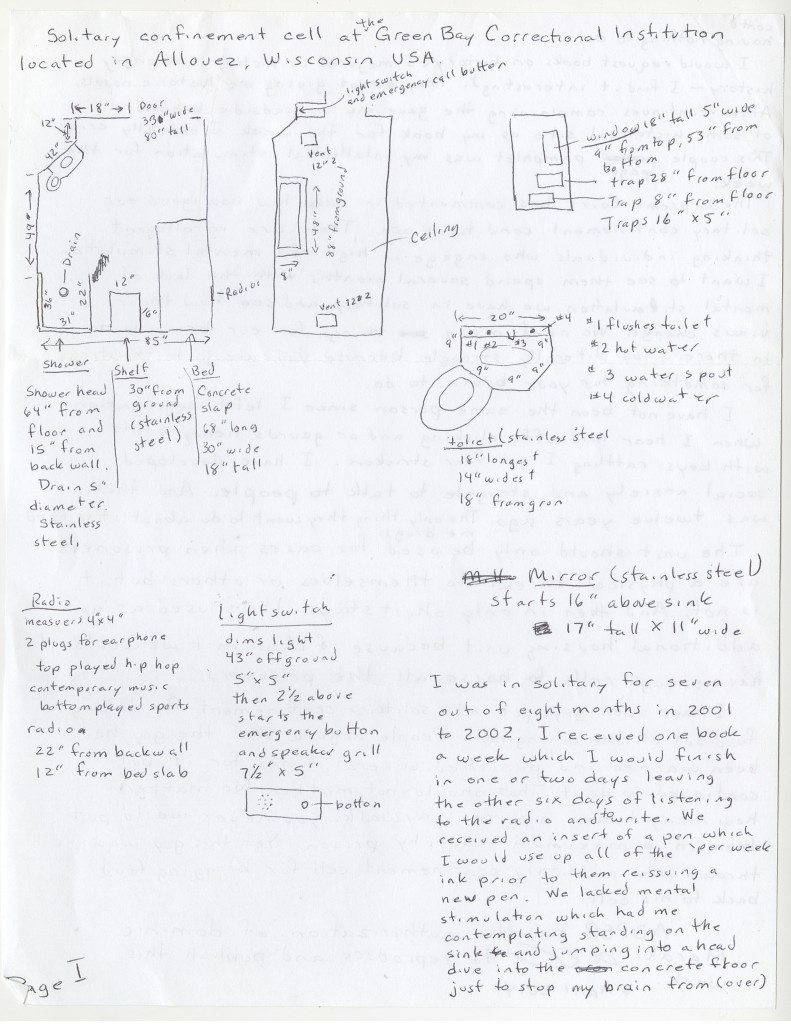 Solitary confinement cell at the Green Bay Correctional Institution
located in Allouez, Wisconsin USA.
light switch
and emergency call button
18"
Door
33" wide
80" tall
12"
42"
49"
Drain
36"
22"
31"
12"
6"
Radios
85"
vent
12"2
48"
38" from ground
8"
Ceiling
vent 12"2
window 18" tall 5" wide
9" from top, 53" from
bottom
trap 28" from floor
Trap 8" from floor
Traps 16" x 5"
20"
#4
9"
#1 #2
#3
9"
9"
9"
9"
#1 flushes toilet
#2 hot water
#3 water spout
#4 cold water
toliet (stainless steel
18" longest
14" widest
18" from gron
Shower
Shower head
64" from
floor and
15" from
back wall.
Drain 5"
diameter.
Stainless
steel.
Shelf
30" from
ground
(stainless
steel)
Bed
Concrete
slap
68" long
30" wide
18" tall
Mirror (stainless steel)
starts 16" above sink
17" tall X 11" wide
Radio
measures 4"x4"
2 plugs for earphone
top played hip hop
contemporary music
bottom played sports
radio
22" from back wall
12" from bed slab
Lightswitch
dims light
43" off ground
5"x5"
then 2½ above
starts the
emergency button
and speaker grill
7½" x 5"
botton
I was in solitary for seven
out of eight months in 2001
to 2002. I received one book
a week which I would finish
in one or two days leaving
the other six days of listening
to the radio and to write. We
received an insert of a pen which
per week
I would use up all of the
ink prior to them reissuing a
new pen. We lacked mental
stimulation which had me
contemplating standing on the
sink and jumping into a head
dive into the concrete floor
just to stop my brain from (over)
Page I